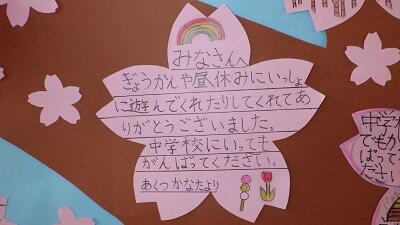 みなさんへ
ぎょうかんや昼休みにいっしょ
に遊んでくれたりしてくれてあ
りがとうございました。
中学校にいっても
がんばってください。
あくつかなたより
中学
でもが
ばって
ださい